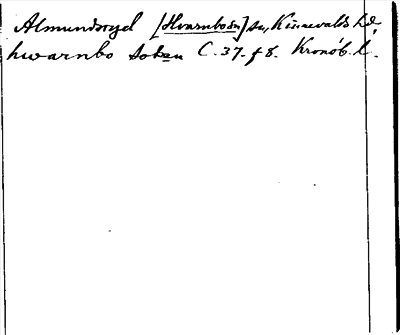 Almundsryd [Hvarnbosn] sn, Kinnevalds hd
hwarnbo soken C. 37. f 8. Kronob. l.